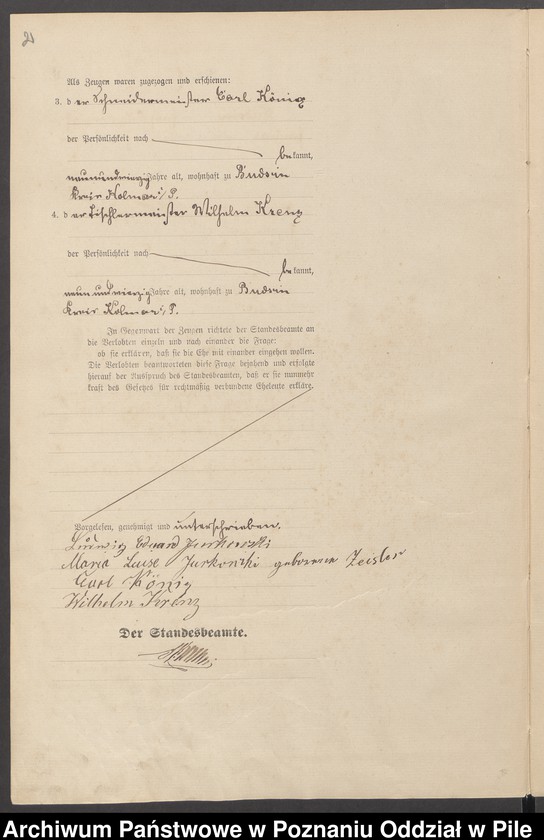 2
Als Zeugen waren zugezogen und erschienen:
3. der Schneidermeister Carl König
der Persönlichkeit nach
bekannt,
neunundvierzig Jahre alt, wohnhaft zu Budsin
Kreis Kolmar i/P.
4. der Tischlermeister Wilhelm Krenz
der Persönlichkeit nach
bekannt,
neunundvierzig Jahre alt, wohnhaft zu Budsin
Kreis Kolmar i/P.
In Gegenwart der Zeugen richtete der Standesbeamte an
die Verlobten einzeln und nach einander die Frage:
ob sie erklären, daß sie die Ehe mit einander eingehen wollen.
Die Verlobten beantworteten diese Frage bejahend und erfolgte
hierauf der Ausspruch des Standesbeamten, daß er sie nunmehr
kraft des Gesetzes für rechtmäßig verbundene Eheleute erkläre.
Vorgelesen, genehmigt und unterschrieben.
Ludwig Eduard Jurkowski
Maria Luise Jurkowski geborene Zeisler
Carl König
Wilhelm Krenz
Der Standesbeamte.
Archiwum Państwowe w Poznaniu Oddział w Pile